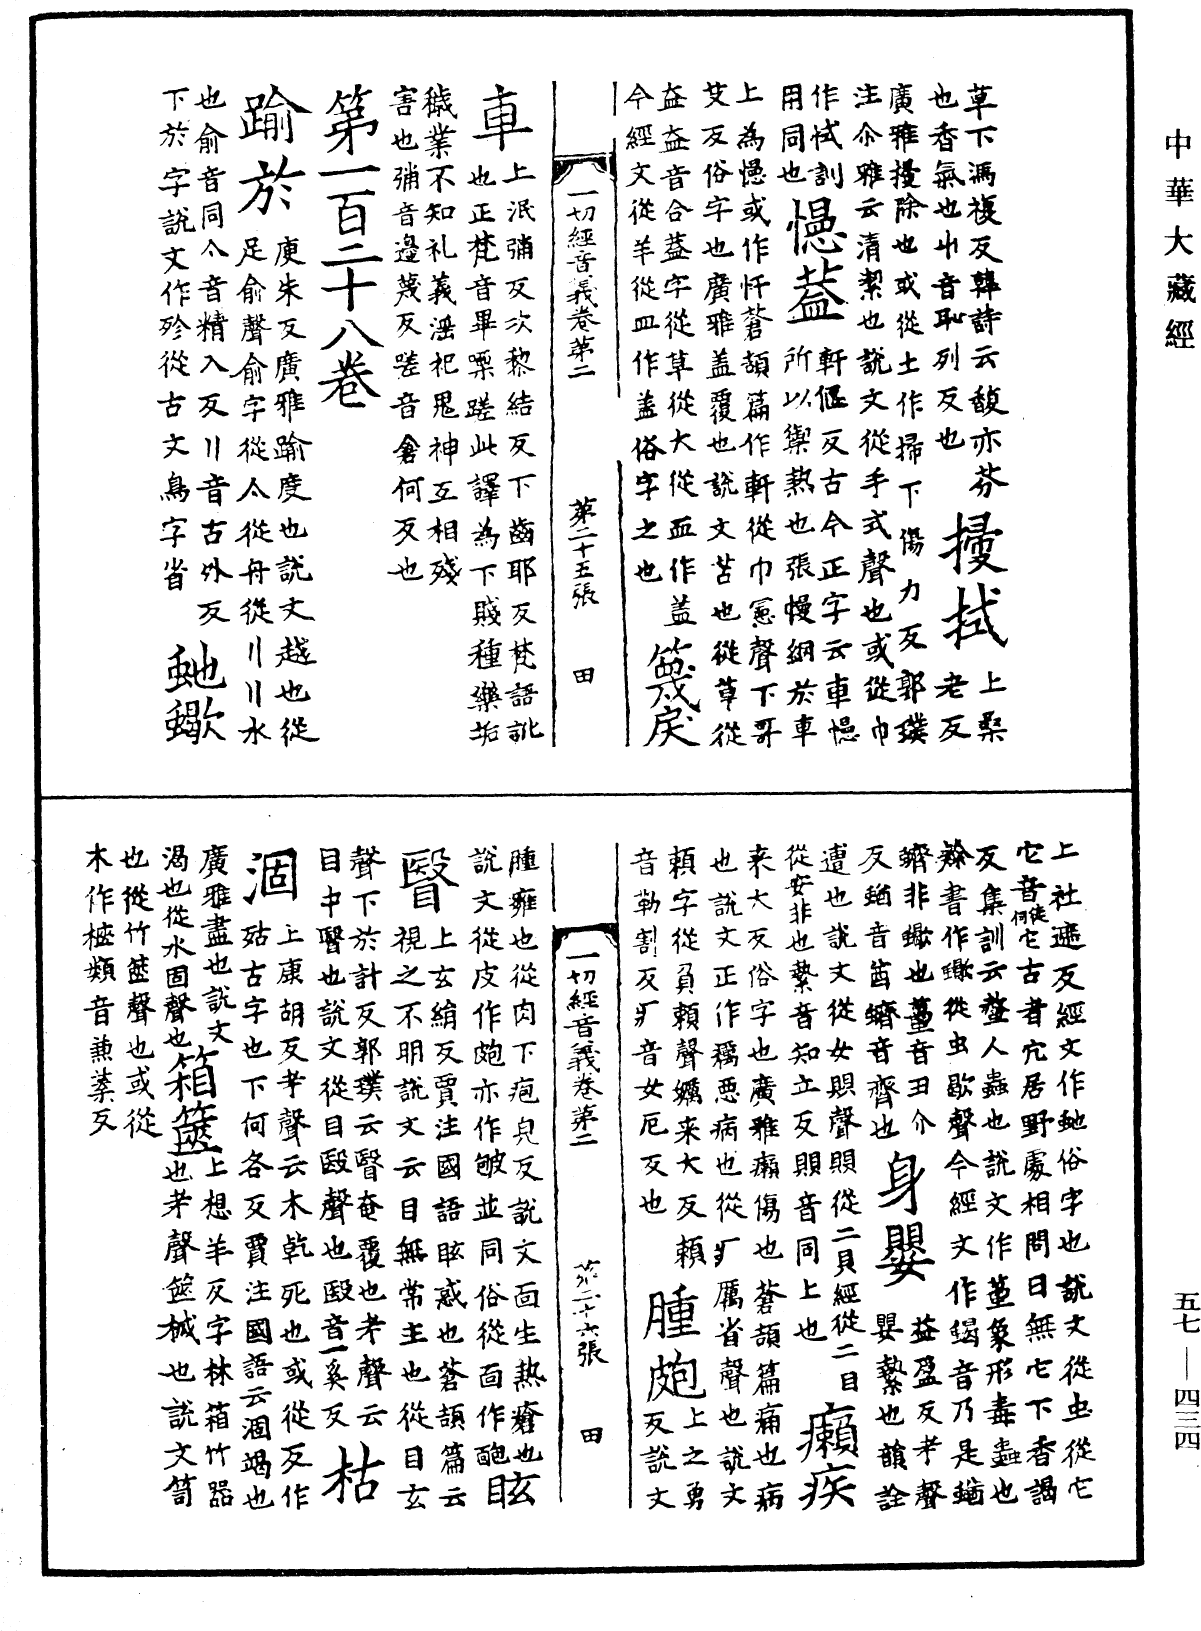 中華大藏經
草下馮複反韓詩云馥亦芬
也香氣也屮音恥列反也
掃拭
上桑
老反
廣雅掃除也或從土作掃下傷力反郭璞
注尒雅云清潔也說文從手式聲也或從巾
作㧑訓
用同也
幰蓋
軒偃反古今正字云車幰
所以禦熱也張幔網於車
上為幰或作忓蒼頡篇作軒從巾憲聲下哥
艾反俗字也廣雅蓋覆也說文苫也從草從
盍盍音合葢字從草從大從血作盖
今經文從羊從皿作盖俗字之也
篾戾
一切經音義卷第二
第二十五張
田
車
上泯彌反次黎結反下齒耶反梵語訛
也正梵音畢栗蹉此譯為下賤種樂垢
穢業不知礼義淫祀鬼神互相殘
害也彌音邊蔑反蹉音倉何反也
第一百二十八卷
踰於
庾朱反廣雅踰度也說文越也從
足俞聲俞字從亼從舟從巜巜水
也俞音同亼音精入反巜音古外反
下於字說文作殄從古文鳥字省
虵蠍
上社遮反經文作虵俗字也說文從虫從它
它音徒何它古者穴居野處相問曰無它下香謁
反集訓云螫人蟲也說文作萬象形毒蟲也
餘書作蠍從虫歇聲今經文作蝎音乃是蝤
蠐非蠍也蠆音丑介
反蝤音酋蠐音齊也
身嬰
益盈反考聲
嬰縶也韻詮
遭也說文從女賏聲賏從二貝經從二目
從安非也縶音知立反賏音同上也
癩疾
来大反俗字也廣雅癩傷也蒼頡篇痛也病
也說文正作癘惡病也從疒厲省聲也說文
頼字從負頼聲癘来大反頼
音勒割反疒音女厄反也
腫皰
上之勇
反說文
一切經音義卷第二
第二十六張
田
腫癰也從肉下疱皃反說文面生熱瘡也
說文從皮作皰亦作㿺並同俗從面作靤
眩
瞖
上玄絹反賈注國語眩惑也蒼頡篇云
視之不明說文云目無常主也從目玄
聲下於計反郭璞云瞖奄覆也考聲云
目中瞖也說文從目殹聲也殹音一奚反
枯
涸
上康胡反考聲云木乾死也或從歺作
㱠古字也下何各反賈注國語云涸竭也
廣雅盡也說文
渴也從水固聲也
箱篋
上想羊反字林箱竹器
也考聲篋椷也說文笥
也從竹匧聲也或從
木作㮇頰音兼葉反
五七—四三四